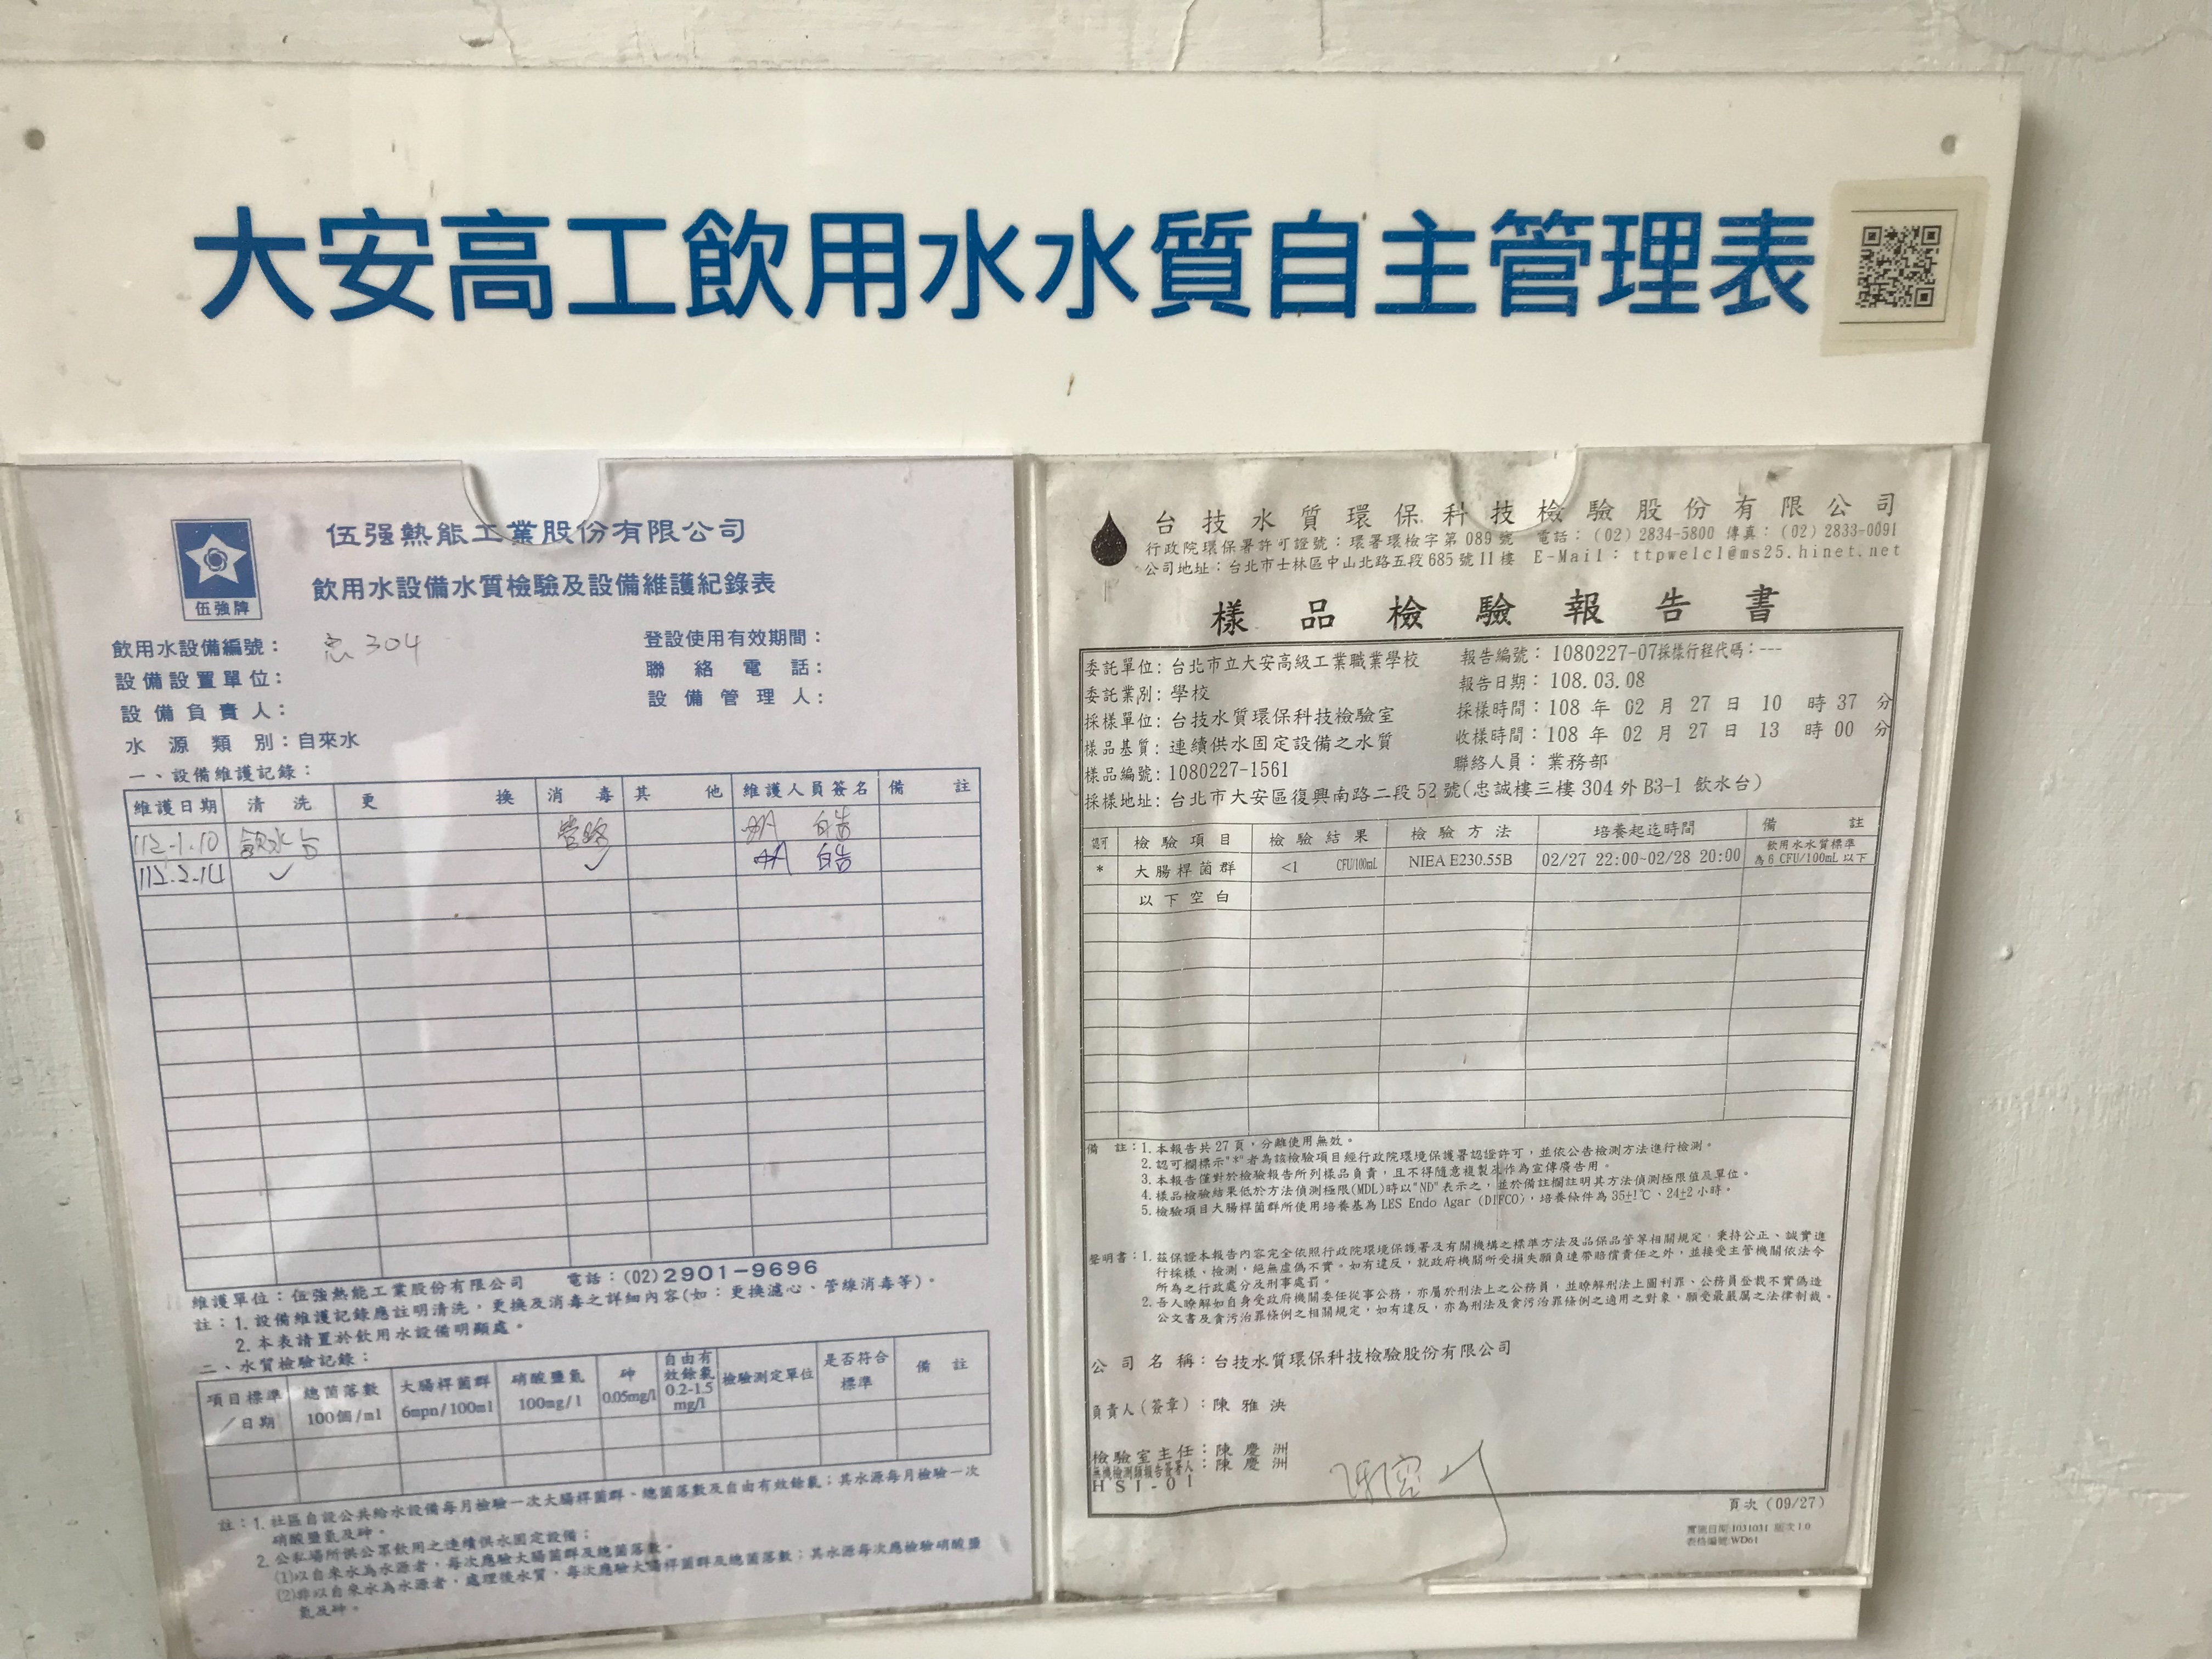 大安高工飲用水水質自主管理表
伍强熱能工業股份有限公司
飲用水設備水質檢驗及設備維護紀錄表
伍強牌
飲用水設備編號： 忠304
登設使用有效期間：
設備設置單位：
聯絡電話：
設備負責人：
設備管理人：
水源類別：自來水
一、設備維護記錄：
維護日期 清洗 更換 消毒 其他 維護人員簽名 備註
112.1.10 飲水台 管路
112.2.14 ✓ ✓
維護單位：伍強熱能工業股份有限公司 電話：(02)2901-9696
註：1.設備維護記錄應註明清洗，更換及消毒之詳細內容(如：更換濾心、管線消毒等)。
2.本表請置於飲用水設備明顯處。
二、水質檢驗記錄：
項目標準／日期 總菌落數100個/ml 大腸桿菌群6mpn/100ml 硝酸鹽氮100mg/l 砷0.05mg/l 自由有效餘氯0.2-1.5mg/l 檢驗測定單位 是否符合標準 備註
註：1.社區自設公共給水設備每月檢驗一次大腸桿菌群、總菌落數及自由有效餘氯；其水源每月檢驗一次
硝酸鹽氮及砷。
2.公私場所供公眾飲用之連續供水固定設備：
(1)以自來水為水源者，每次應驗大腸菌群及總菌落數。
(2)非以自來水為水源者，處理後水質，每次應驗大腸桿菌群及總菌落數；其水源每次應檢驗硝酸鹽
氮及砷。
台技水質環保科技檢驗股份有限公司
行政院環保署許可證號：環署環檢字第089號 電話：(02)2834-5800 傳真：(02)2833-0091
公司地址：台北市士林區中山北路五段685號11樓 E-Mail：ttpwelcl@ms25.hinet.net
樣品檢驗報告書
委託單位：台北市立大安高級工業職業學校
報告編號：1080227-07採樣行程代碼：---
委託業別：學校
報告日期：108.03.08
採樣單位：台技水質環保科技檢驗室
採樣時間：108年02月27日10時37分
樣品基質：連續供水固定設備之水質
收樣時間：108年02月27日13時00分
樣品編號：1080227-1561
聯絡人員：業務部
採樣地址：台北市大安區復興南路二段52號(忠誠樓三樓304外B3-1 飲水台)
認可 檢驗項目 檢驗結果 檢驗方法 培養起迄時間 備註
* 大腸桿菌群 <1 CFU/100mL NIEA E230.55B 02/27 22:00~02/28 20:00 飲用水水質標準為6 CFU/100mL以下
以下空白
備註：1.本報告共27頁，分離使用無效。
2.認可欄標示"*"者為該檢驗項目經行政院環境保護署認證許可，並依公告檢測方法進行檢測。
3.本報告僅對於檢驗報告所列樣品負責，且不得隨意複製及作為宣傳廣告用。
4.樣品檢驗結果低於方法偵測極限(MDL)時以"ND"表示之，並於備註欄註明其方法偵測極限值及單位。
5.檢驗項目大腸桿菌群所使用培養基為LES Endo Agar (DIFCO)，培養條件為35±1℃、24±2小時。
聲明書：1.茲保證本報告內容完全依照行政院環境保護署及有關機構之標準方法及品保品管等相關規定，秉持公正、誠實進
行採樣、檢測，絕無虛偽不實。如有違反，就政府機關所受損失願負連帶賠償責任之外，並接受主管機關依法令
所為之行政處分及刑事處罰。
2.吾人瞭解如自身受政府機關委任從事公務，亦屬於刑法上之公務員，並瞭解刑法上圖利罪、公務員登載不實偽造
公文書及貪污治罪條例之相關規定，如有違反，亦為刑法及貪污治罪條例之適用之對象，願受最嚴厲之法律制裁。
公司名稱：台技水質環保科技檢驗股份有限公司
負責人(簽章)：陳雅泱
檢驗室主任：陳慶洲
無機檢測類報告簽署人：陳慶洲
HSI-01
頁次(09/27)
實施日期:1031031 版次1.0
表格編號:WD61